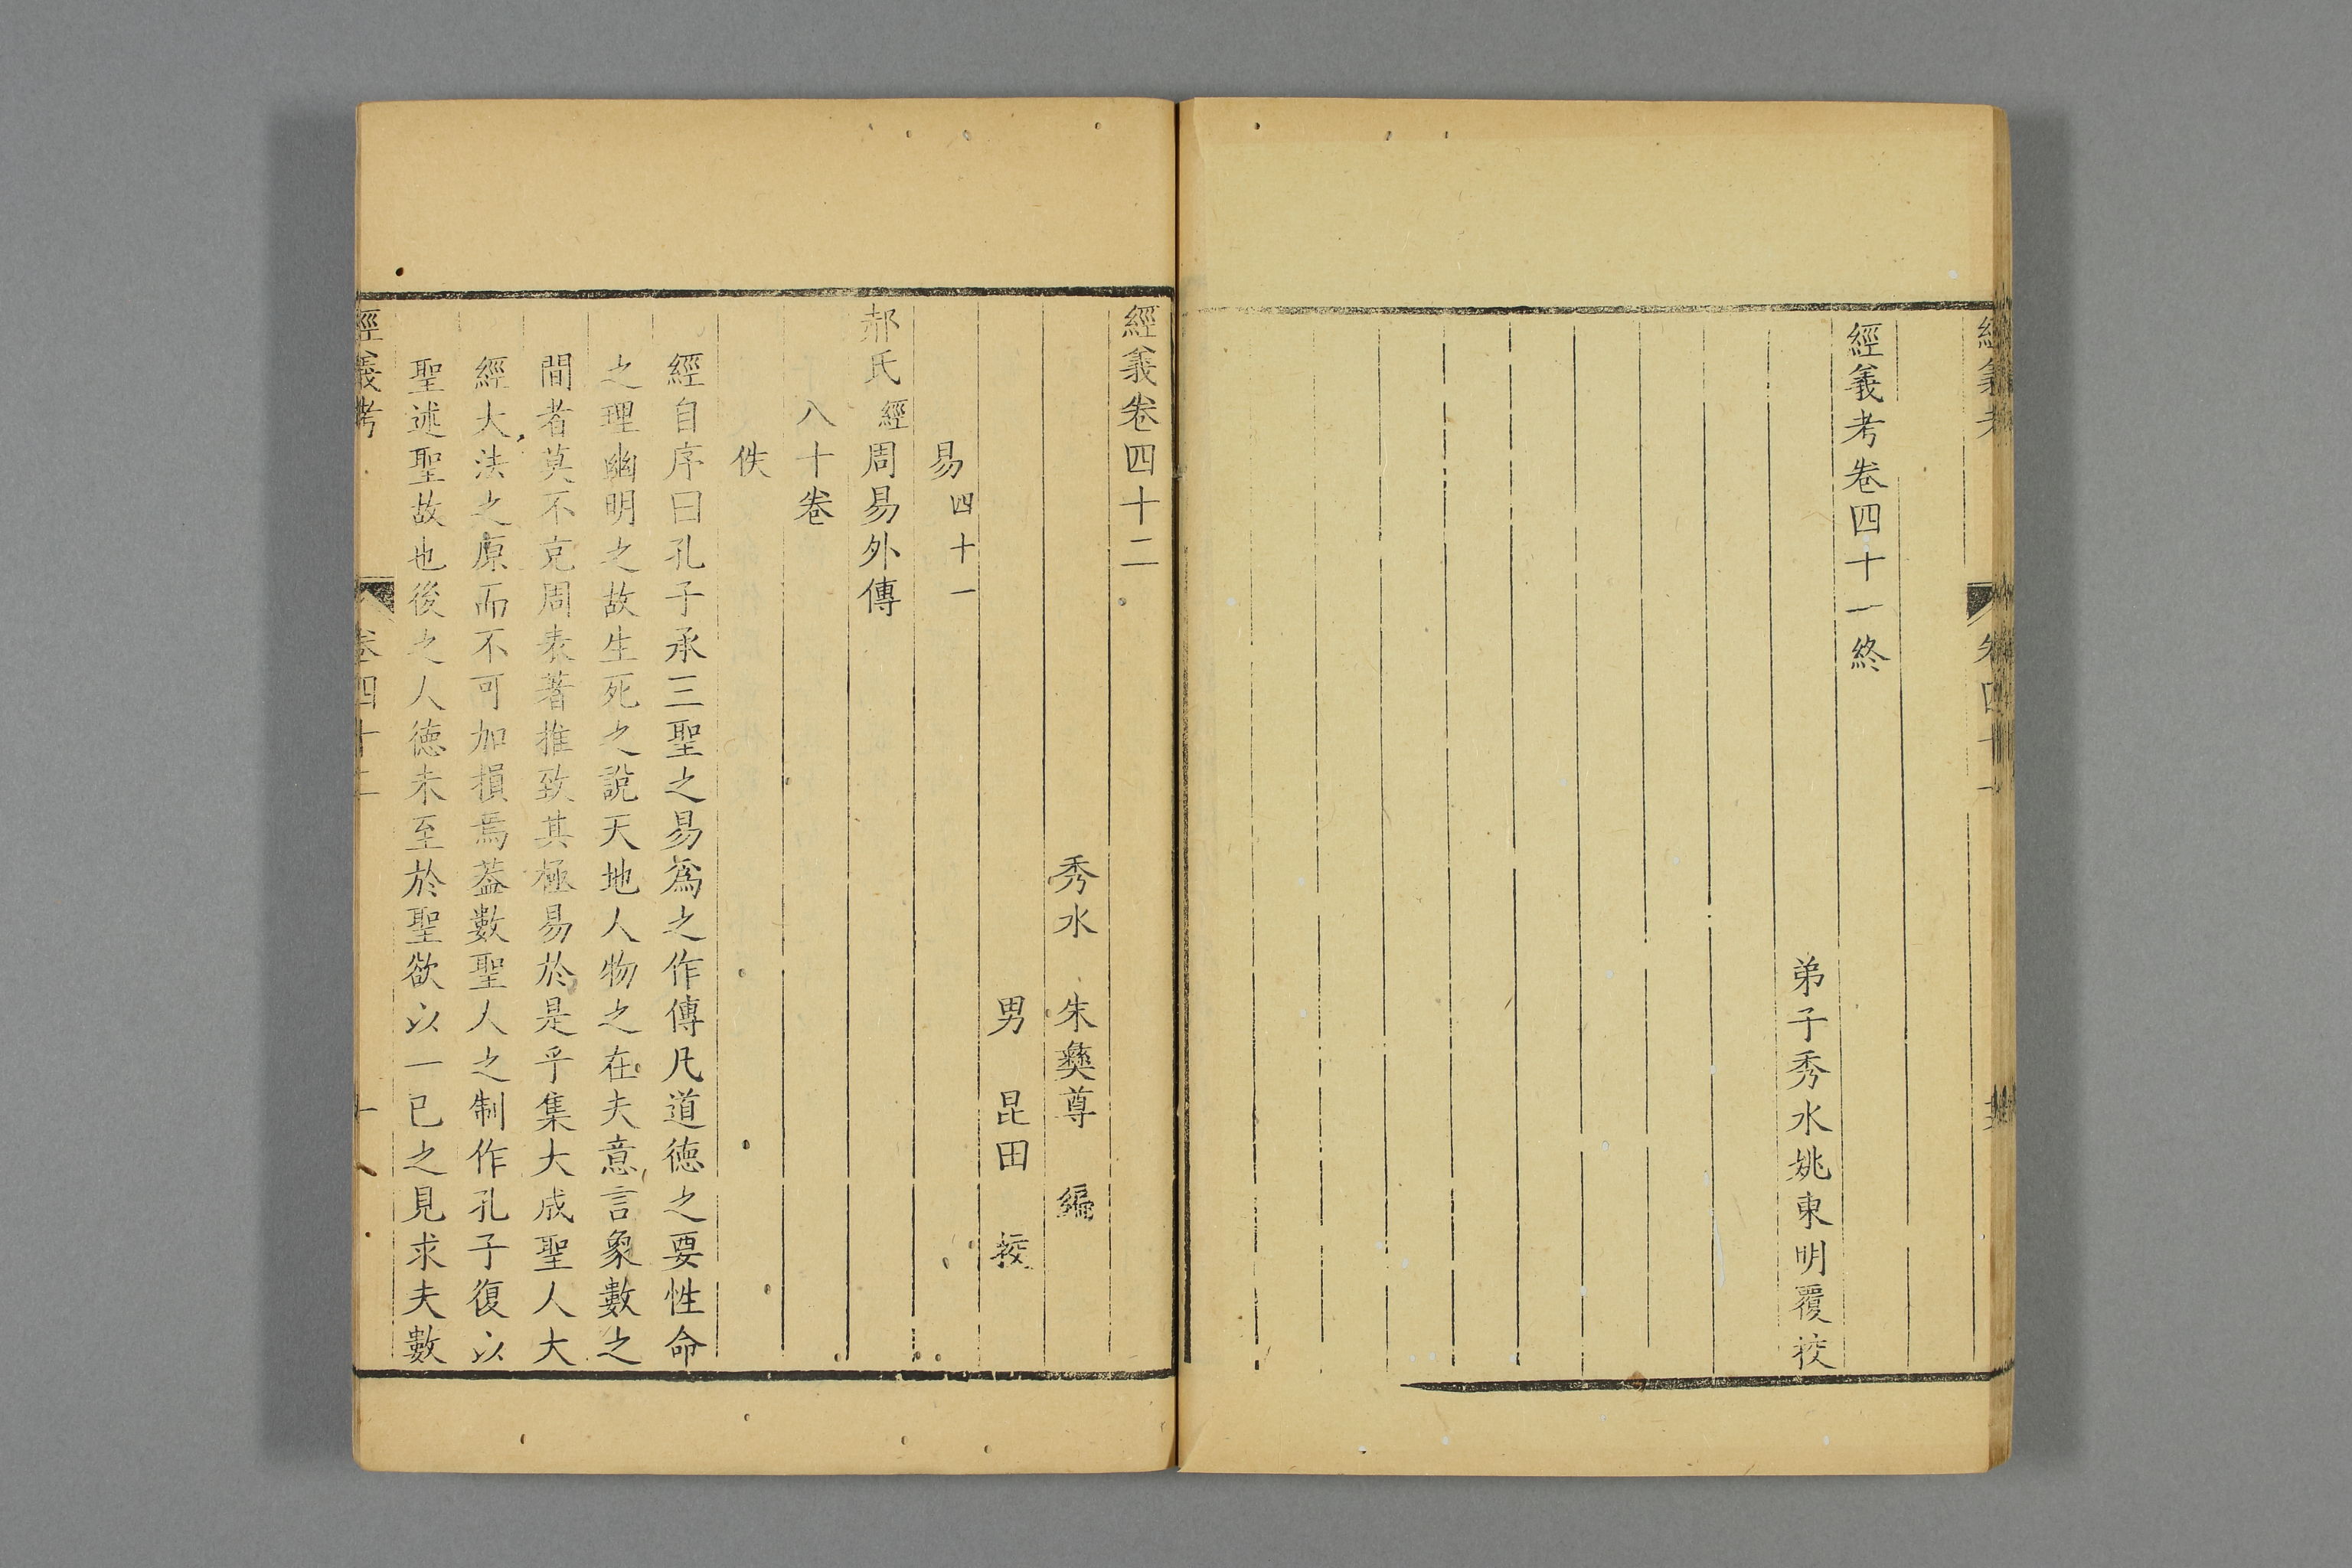 經義考
卷四十一
經義考卷四十一終
弟子秀水姚東明覆挍
經義卷四十二
秀水 朱彝尊 編
男 昆田 挍
易四十一
郝氏經周易外傳
八十卷
佚
經自序曰孔子承三聖之易爲之作傳凡道德之要性命
之理幽明之故生死之說天地人物之在夫意言象數之
間者莫不克周表著推致其極易於是乎集大成聖人大
經大法之原而不可加損焉蓋數聖人之制作孔子復以
聖述聖故也後之人德未至於聖欲以一已之見求夫數
經義考
卷四十二
一